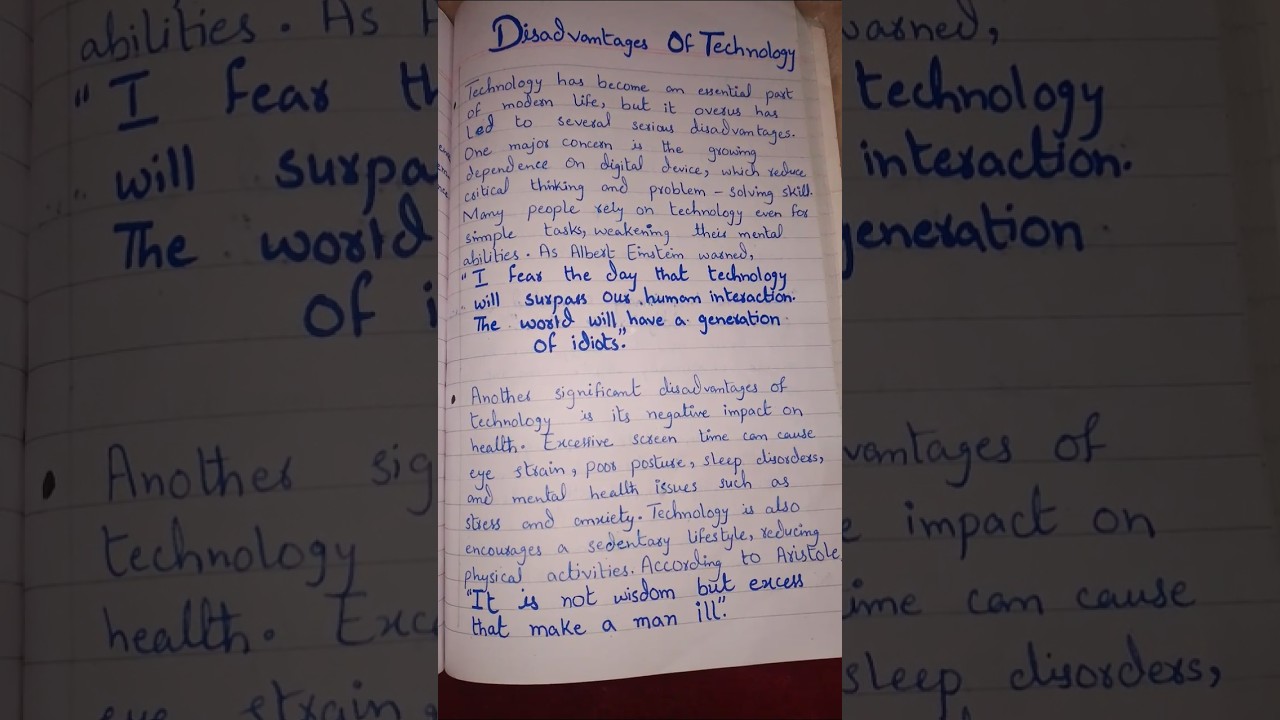 Disadvantages Of Technology
Technology has become an essential part
of modern life, but it overus has
Led to several serious disadvantages.
One major concern is the growing
dependence on digital device, which reduce
critical thinking and problem - solving skill.
Many people rely on technology even for
simple tasks, weakening their mental
abilities. As Albert Einstein warned,
"I fear the day that technology
will surpass our human interaction.
The world will have a generation
of idiots."
• Another significant disadvantages of
technology is its negative impact on
health. Excessive screen time can cause
eye strain, poor posture, sleep disorders,
and mental health issues such as
stress and anxiety. Technology is also
encourages a sedentary lifestyle, reducing
physical activities. According to Aristole
"It is not wisdom but excess
that make a man ill".